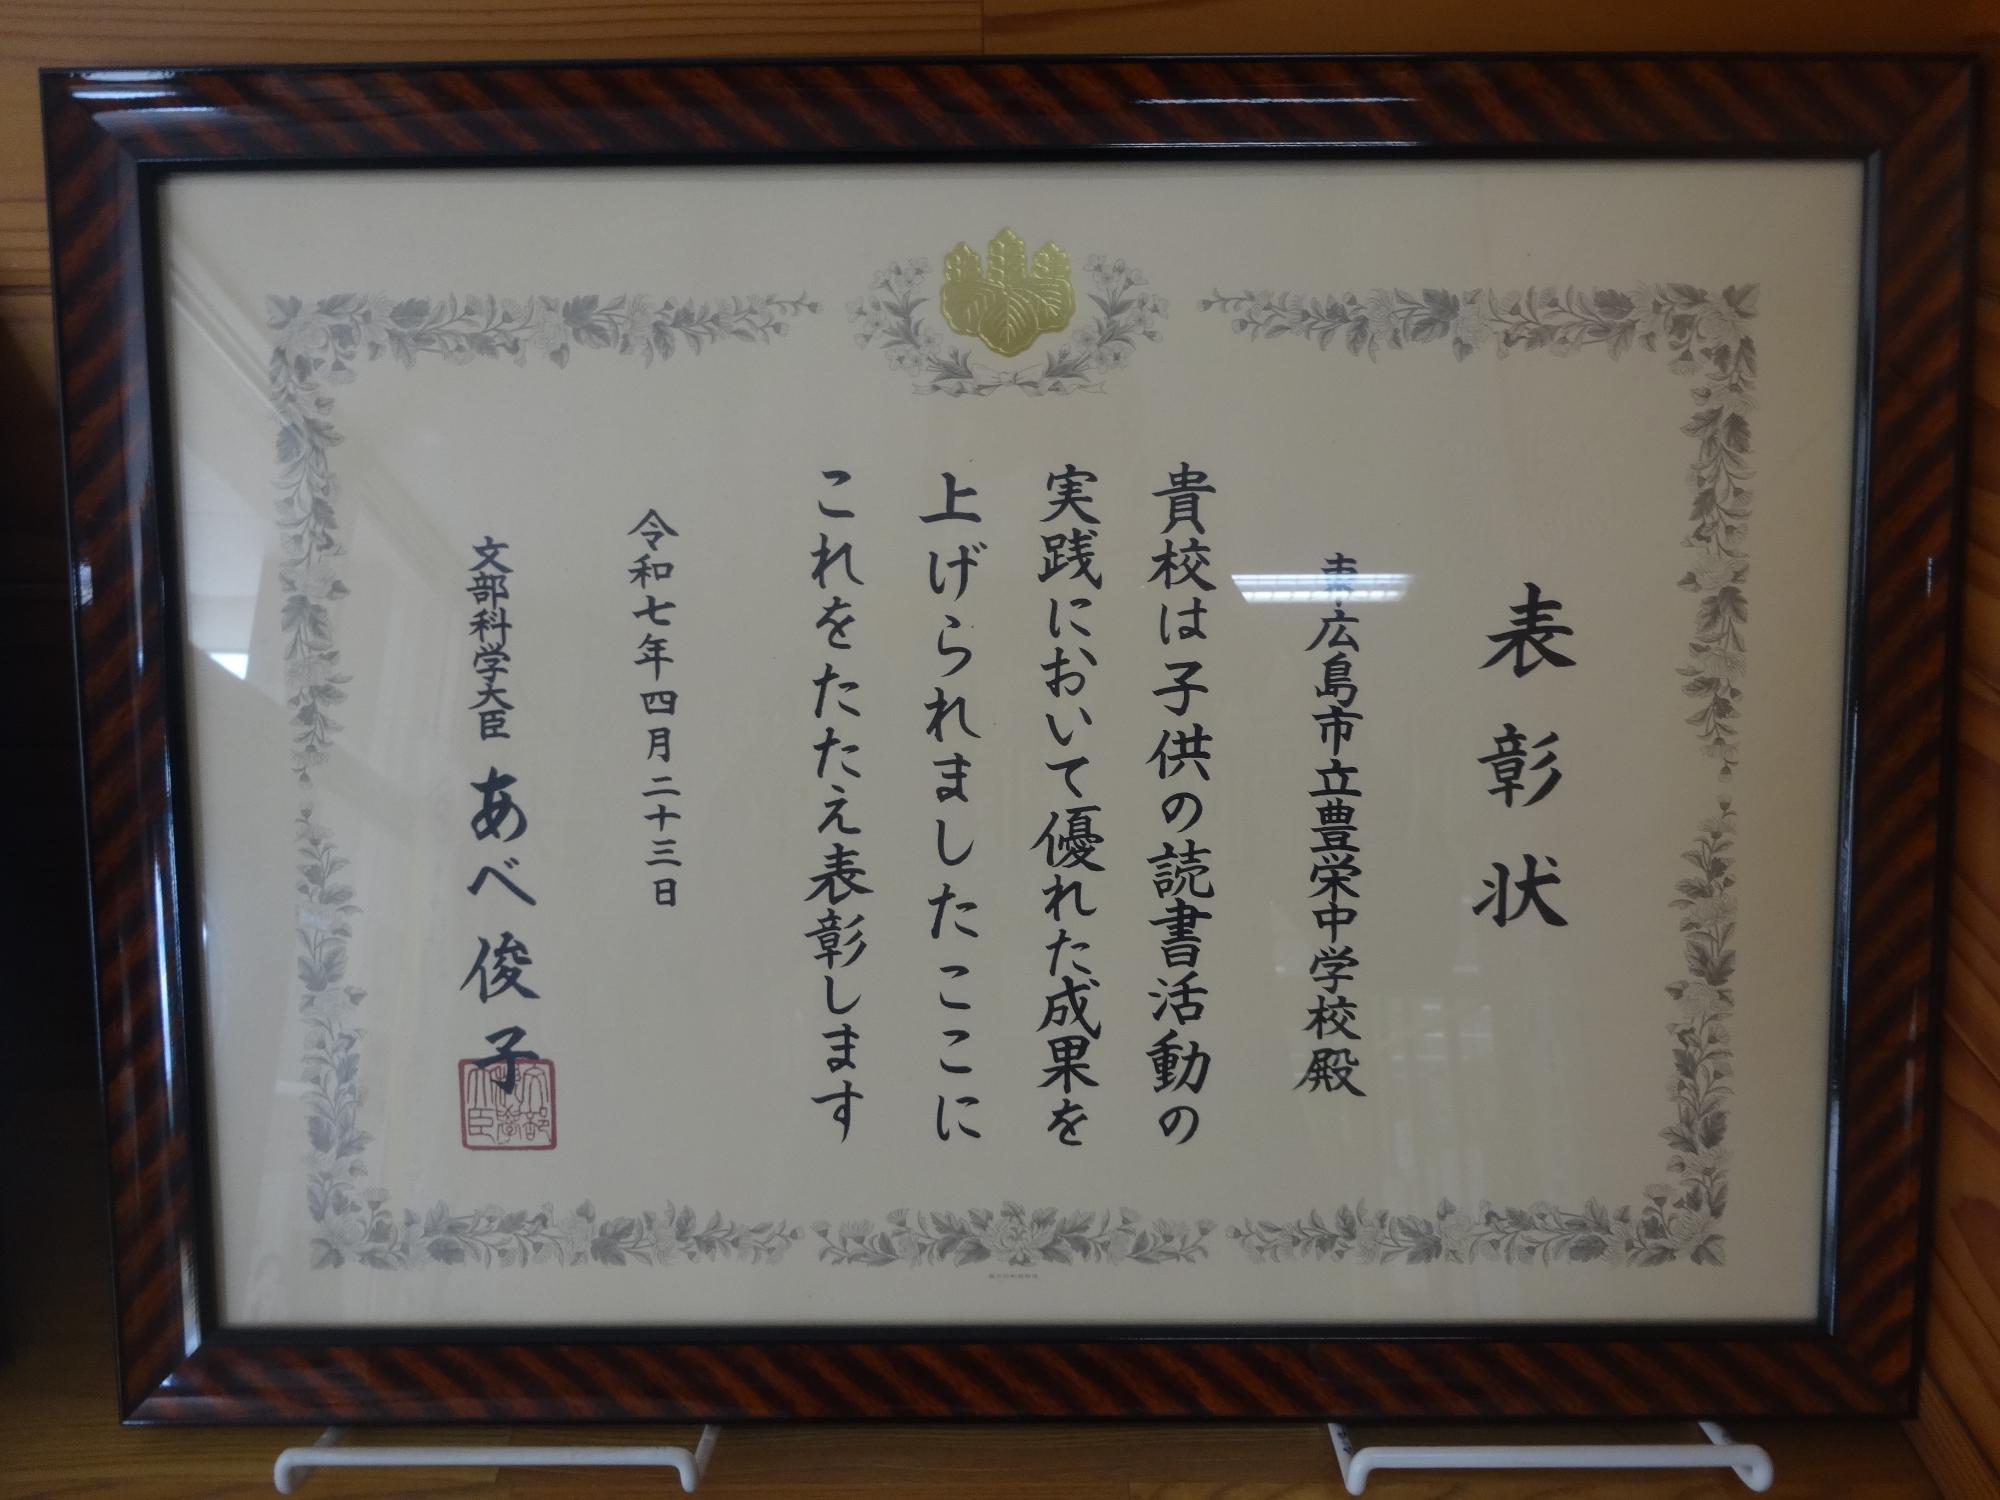 表彰状
東広島市立豊栄中学校殿
貴校は子供の読書活動の
実践において優れた成果を
上げられましたここに
これをたたえ表彰します
令和七年四月二十三日
文部科学大臣 あべ俊子